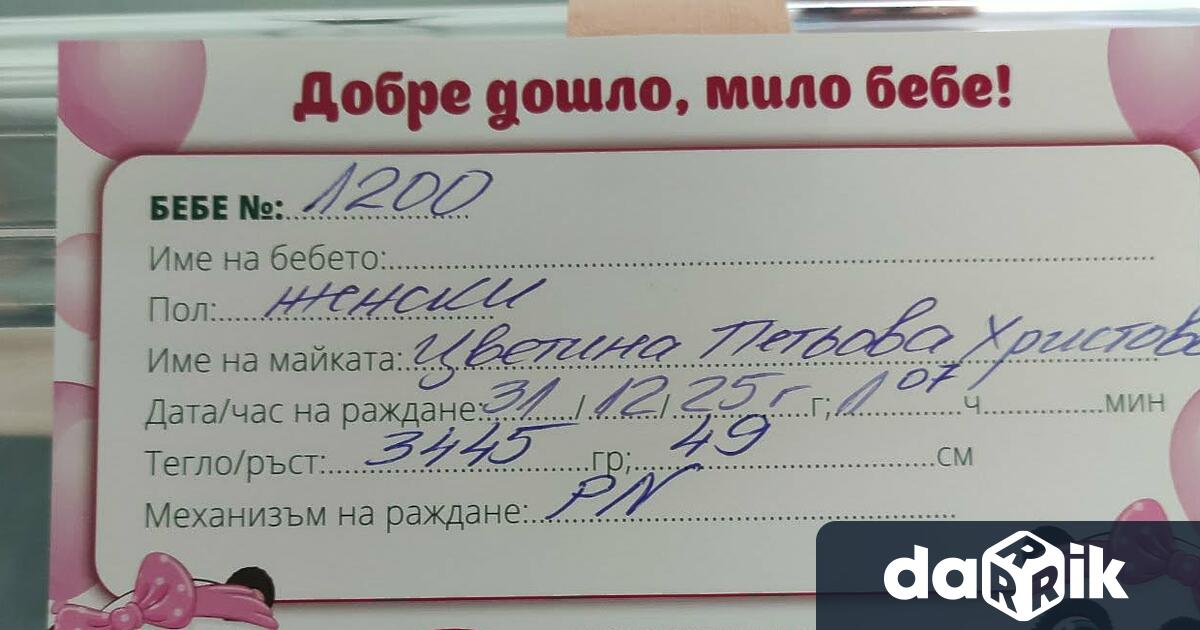 Добре дошло, мило бебе!
БЕБЕ №: 1200
Име на бебето:
Пол: женски
Име на майката: Цветина Петьова Христова
Дата/час на раждане: 31 / 12 / 25г г; 1 07 ч. мин
Тегло/ръст: 3445 гр; 49 см
Механизъм на раждане: PN
darik